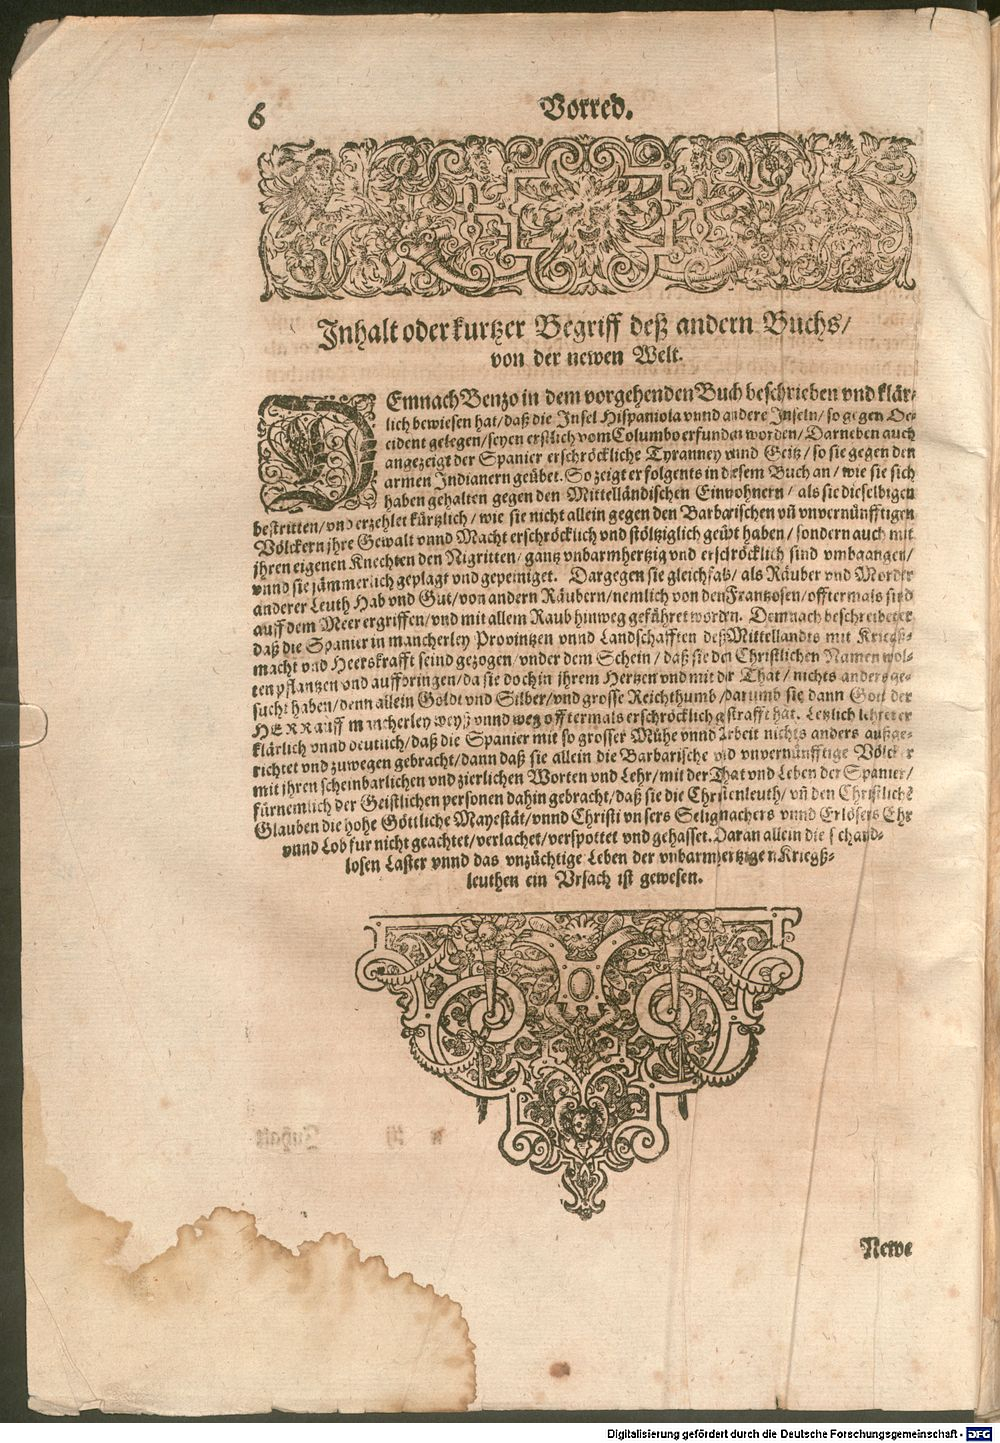 6
Vorred.
Inhalt oder kurtzer Begriff deß andern Buchs/
von der newen Welt.
DEmnach Benzo in dem vorgehenden Buch beschrieben vnd klär-
lich bewiesen hat/daß die Insel Hispaniola vnnd andere Inseln/so gegen Oc-
cident gelegen/seyen erstlich vom Columbo erfunden worden/Darneben auch
angezeigt der Spanier erschröckliche Tyranney vnnd Geitz/so sie gegen den
armen Indianern geübet. So zeigt er folgents in diesem Buch an/wie sie sich
haben gehalten gegen den Mittelländischen Einwohnern/als sie dieselbigen
bestritten/vnd erzehlet kürtzlich/wie sie nicht allein gegen den Barbarischen vñ vnvernünfftigen
Völckern jhre Gewalt vnnd Macht erschröcklich vnd stöltziglich geübt haben/sondern auch mit
jhren eigenen Knechten den Nigritten/gantz vnbarmhertzig vnd erschröcklich sind vmbgangen/
vnnd sie jämmerlich geplagt vnd gepeiniget. Dargegen sie gleichfals/als Räuber vnd Mörder
anderer Leuth Hab vnd Gut/von andern Räubern/nemlich von den Frantzosen/offtermals sind
auff dem Meer ergriffen/vnd mit allem Raub hinweg geführet worden. Demnach beschreibet er
daß die Spanier in mancherley Provintzen vnnd Landschafften deß Mittellandts mit Kriegß-
macht vnd Heerskrafft seind gezogen/vnder dem Schein/daß sie den Christlichen Namen wol-
ten pflantzen vnd auffbringen/da sie doch in jhrem Hertzen vnd mit der That/nichts anders ge-
sucht haben/denn allein Goldt vnd Silber/vnd grosse Reichthumb/darumb sie dann Gott der
HERR auff mancherley weyß vnnd weg offtermals erschröcklich gstrafft hat. Letzlich lehret er
klärlich vnnd deutlich/daß die Spanier mit so grosser Mühe vnnd Arbeit nichts anders außge-
richtet vnd zuwegen gebracht/dann daß sie allein die Barbarische vnd vnvernünfftige Völcker
mit jhren scheinbarlichen vnd zierlichen Worten vnd Lehr/mit der That vnd Leben der Spanier/
fürnemlich der Geistlichen personen dahin gebracht/daß sie die Christenleuth/vñ den Christlichē
Glauben die hohe Göttliche Mayestät/vnnd Christi vnsers Seligmachers vnnd Erlösers Ehr
vnnd Lob fur nicht geachtet/verlachet/verspottet vnd gehasset. Daran allein die schand-
losen Laster vnnd das vnzüchtige Leben der vnbarmhertzigen Kriegß-
leuthen ein Vrsach ist gewesen.
Newe
Digitalisierung gefördert durch die Deutsche Forschungsgemeinschaft - DFG